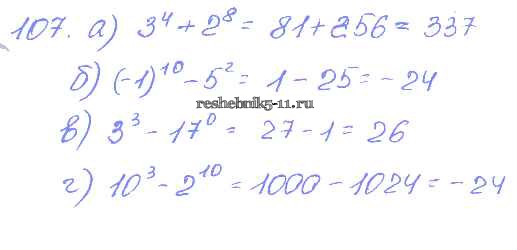 107. а) 3⁴ + 2⁸ = 81 + 256 = 337
б) (-1)¹⁰ - 5² = 1 - 25 = - 24
reshebnik5-11.ru
в) 3³ - 17⁰ = 27 - 1 = 26
г) 10³ - 2¹⁰ = 1000 - 1024 = - 24